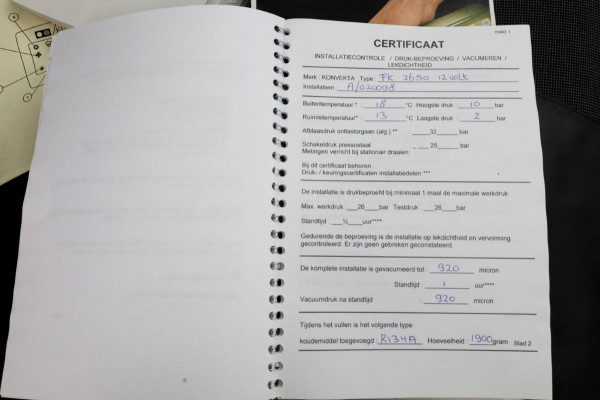 CERTIFICAAT
INSTALLATIECONTROLE / DRUK-BEPROEVING / VACUMEREN /
LEKDICHTHEID
Merk : KONVEKTA Type : FK 2650 12 volt
Installatienr. : A/020098
Buitentemperatuur * : 18 °C Hoogste druk : 10 bar
Ruimtetemperatuur* : 13 °C Laagste druk : 2 bar
Afblaasdruk ontlastorgaan (alg.) ** : 32 bar
Schakeldruk pressostaat : 25 bar
Metingen verricht bij stationair draaien:
Bij dit certificaat behoren :
Druk- / keuringscertificaten installatiedelen ***
De installatie is drukbeproefd bij minimaal 1 maal de maximale werkdruk.
Max. werkdruk : 26 bar Testdruk 26 bar
Standtijd : ½ uur****
Gedurende de beproeving is de installatie op lekdichtheid en vervorming
gecontroleerd. Er zijn geen gebreken geconstateerd.
De komplete installatie is gevacumeerd tot : 920 micron
Standtijd : 1 uur****
Vacuumdruk na standtijd : 920 micron
Tijdens het vullen is het volgende type
koudemiddel toegevoegd : R134A Hoeveelheid : 1900 gram Blad 2